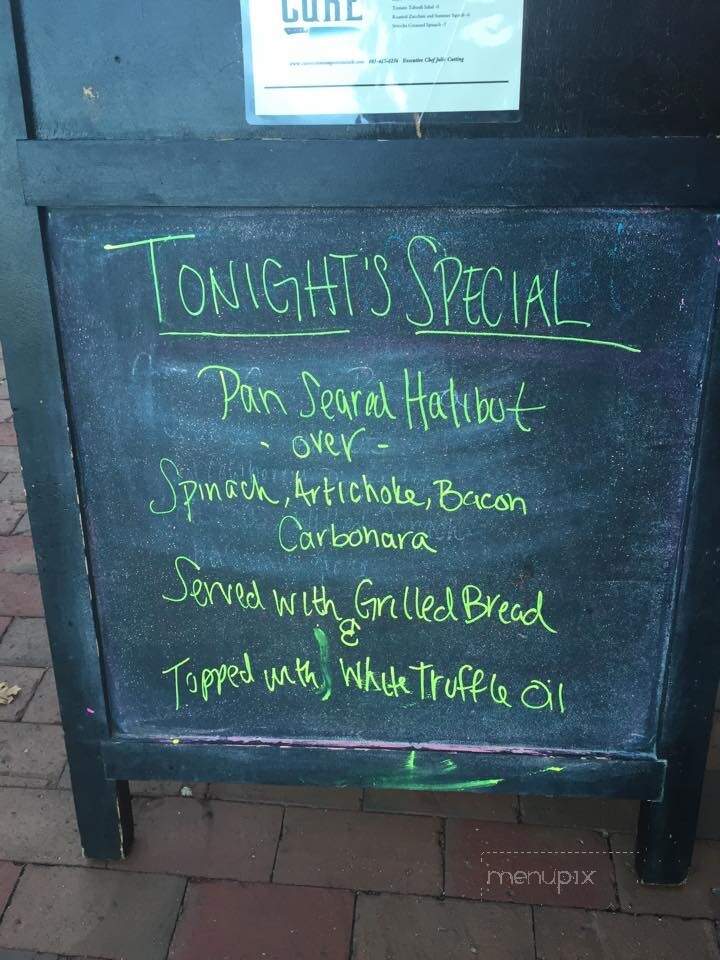 CURE
Tomato Tabouli Salad -6
Roasted Zucchini and Summer Squash -6
Sriracha Creamed Spinach -7
Executive Chef Julie Cutting
TONIGHT'S SPECIAL
Pan Seared Halibut
- over -
Spinach, Artichoke, Bacon
Carbonara
Served with Grilled Bread
&
Topped with White Truffle Oil
menupix